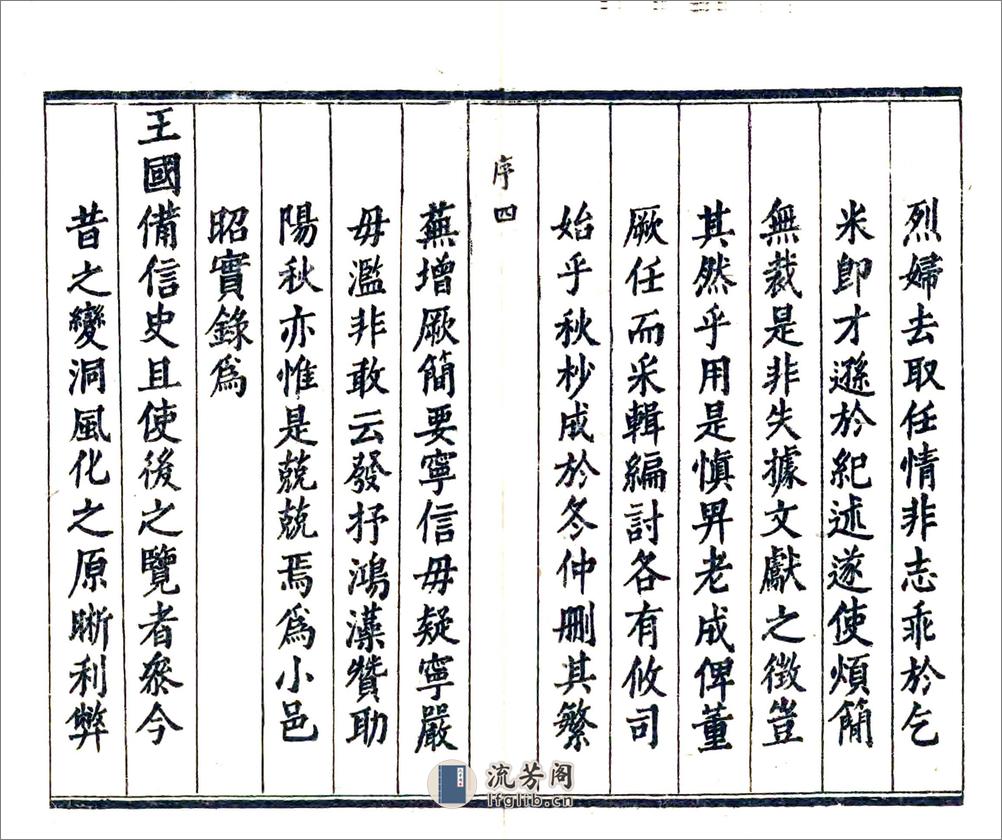 烈婦去取任情非志乖於乞
米即才遜於紀述遂使煩簡
無裁是非失據文獻之徵豈
其然乎用是慎畀老成俾董
厥任而采輯編討各有攸司
始乎秋杪成於冬仲刪其繁
序四
蕪增厥簡要寧信毋疑寧嚴
毋濫非敢云發抒鴻藻贊助
陽秋亦惟是兢兢焉為小邑
昭實錄為
王國備信史且使後之覽者叅今
昔之變洞風化之原晰利弊
流芳阁
lfglib.cn